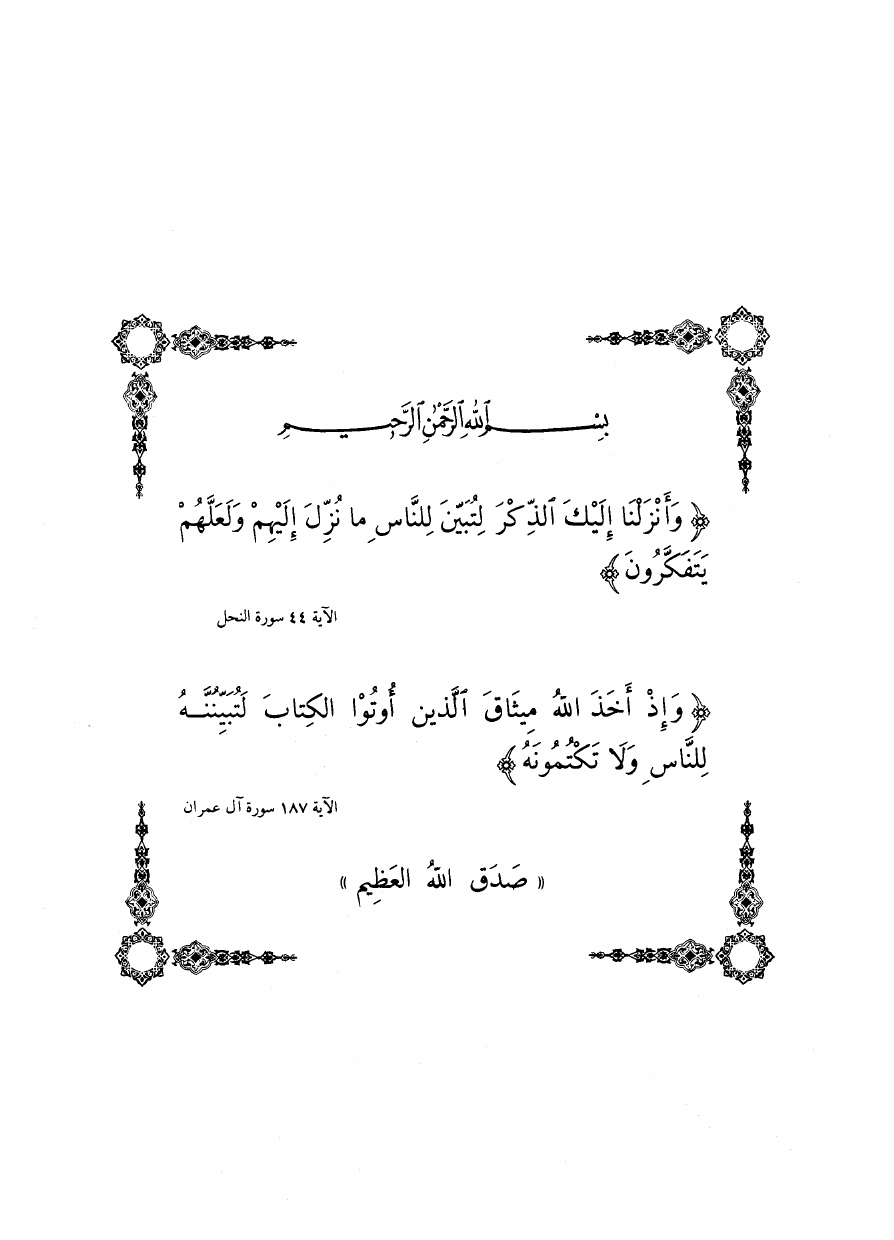 بِسْمِ ٱللَّهِ ٱلرَّحْمَٰنِ ٱلرَّحِيمِ
﴿ وَأَنْزَلْنَا إِلَيْكَ ٱلذِّكْرَ لِتُبَيِّنَ لِلنَّاسِ ما نُزِّلَ إِلَيْهِمْ وَلَعَلَّهُمْ
يَتَفَكَّرُونَ ﴾
الآية ٤٤ سورة النحل
﴿ وَإِذْ أَخَذَ اللهُ مِيثَاقَ ٱلَّذين أُوتُوْا الكِتابَ لَتُبَيِّنُنَّــهُ
لِلنَّاسِ وَلَا تَكْتُمُونَهُ ﴾
الآية ١٨٧ سورة آل عمران
« صَدَقَ اللهُ العَظِيم »